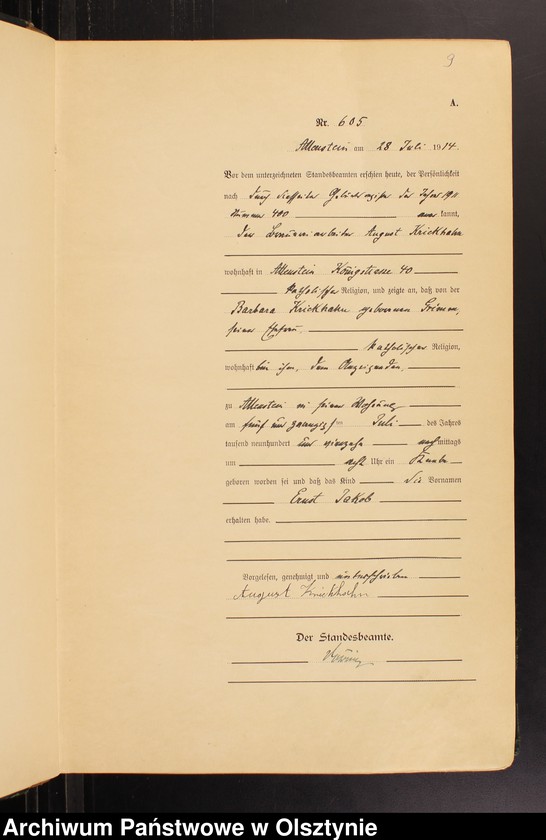 9
A.
Nr. 605.
Allenstein am 28 Juli 1914.
Vor dem unterzeichneten Standesbeamten erschien heute, der Persönlichkeit
nach durch der Jahres 1911
Nummer 400 kannt,
der Brauereiarbeiter August Krickhahn
wohnhaft in Allenstein Königstrasse 40
katholischer Religion, und zeigte an, daß von der
Barbara Krickhahn geborenen Grimm,
seiner Ehefrau,
katholischer Religion,
wohnhaft bei ihm, dem Anzeigenden,
zu Allenstein in seiner Wohnung
am fünf und zwanzigsten Juli des Jahres
tausend neunhundert und vierzehn nachmittags
um acht Uhr ein Knabe
geboren worden sei und daß das Kind die Vornamen
Ernst Jakob
erhalten habe.
Vorgelesen, genehmigt und unterschrieben
August Krickhahn
Der Standesbeamte.
Archiwum Państwowe w Olsztynie